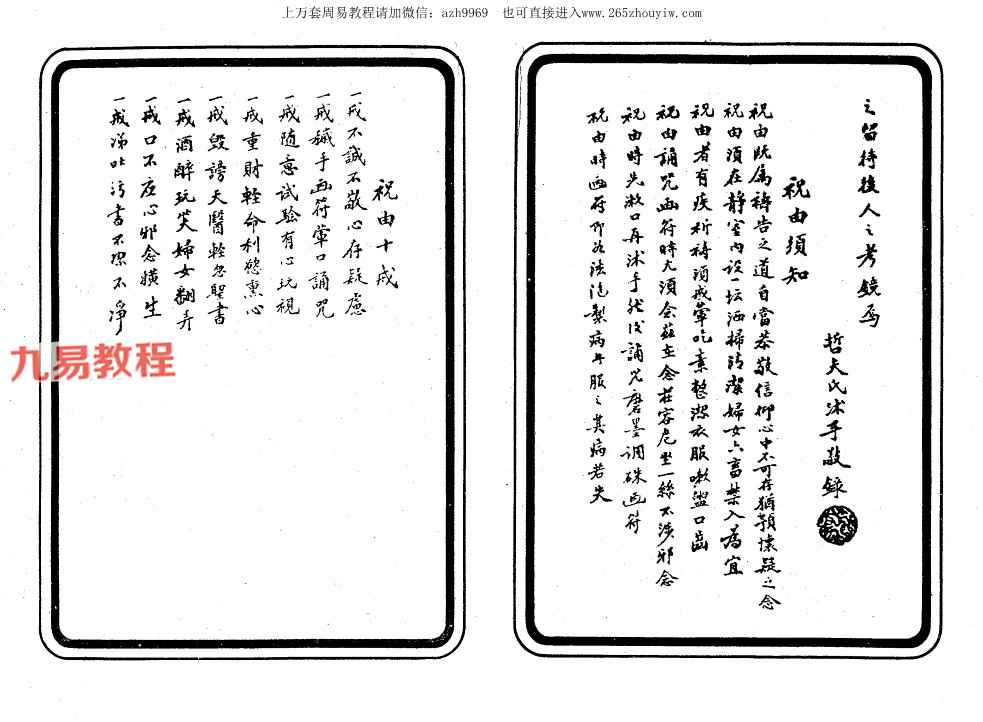 上万套周易教程请加微信：azh9969　也可直接进入www.265zhouyiw.com
之留待後人之考鏡焉
哲夫氏沐手敬錄
祝由須知
祝由既属祷告之道自當恭敬信仰心中不可存猶预懷疑之念
祝由須在静室內设一坛洒掃清潔婦女六畜禁入為宜
祝由者有疾祈祷須戒葷吃素整潔衣服嗽盥口齒
祝由誦咒画符時尤須念茲在念莊容危坐一絲不涉邪念
祝由時先漱口再沐手然後誦咒磨墨調硃画符
祝由時画符即如法泡製病者服之其病若失
祝由十戒
一戒不誠不敬心存疑慮
一戒穢手画符葷口誦咒
一戒随意試驗有心玩視
一戒重財輕命利慾熏心
一戒毀謗天醫輕忽聖書
一戒酒醉玩笑婦女翻弄
一戒口不应心邪念横生
一戒涕吐污書不潔不淨
九易教程